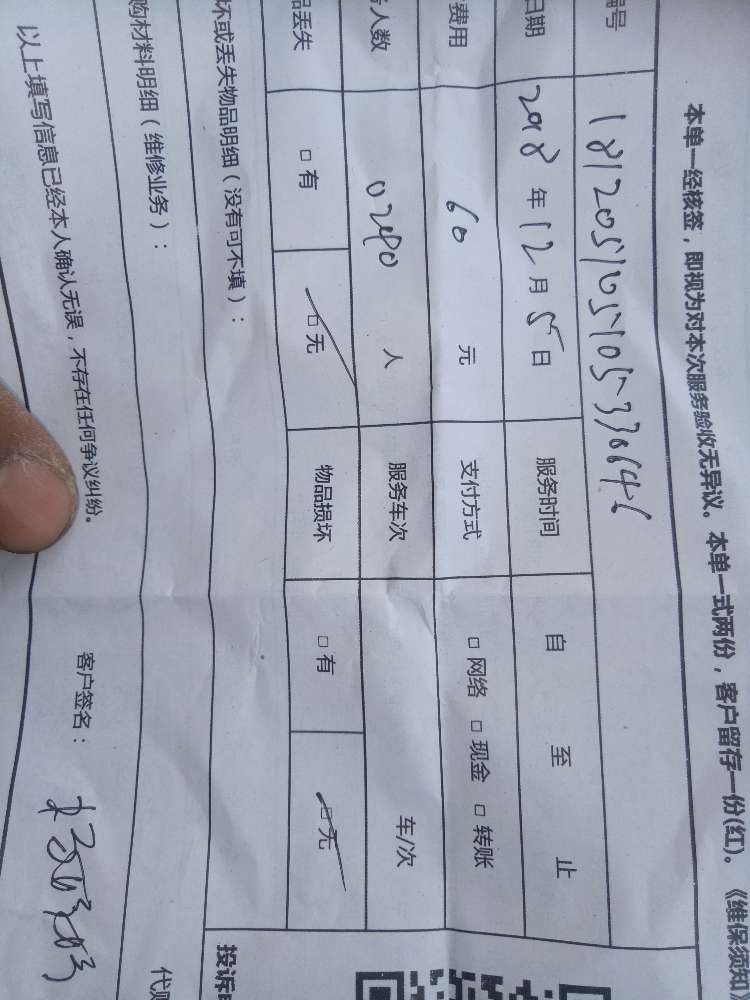 本单一经核签，即视为对本次服务验收无异议。本单一式两份，客户留存一份(红)。《维保须知》
编号
日期 2018 年 12 月 5 日 服务时间 自 至 止
费用 60 元 支付方式 □ 网络 □ 现金 □ 转账
人数 人 服务车次 车/次
品丢失 □ 有 □ 无 物品损坏 □ 有 □ 无
坏或丢失物品明细（没有可不填）：
购材料明细（维修业务）：
以上填写信息已经本人确认无误，不存在任何争议纠纷。 客户签名：
投诉
代